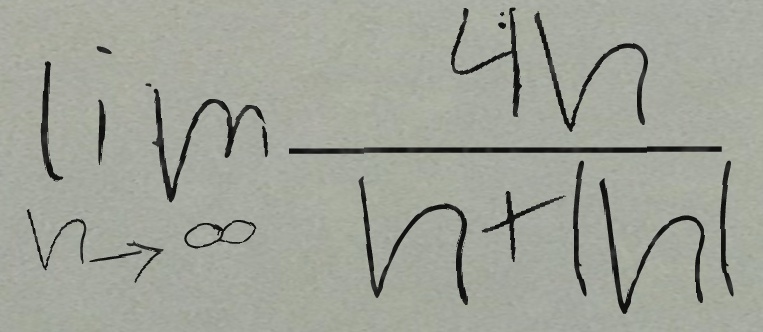 lim n→∞ 4n / n+|n|